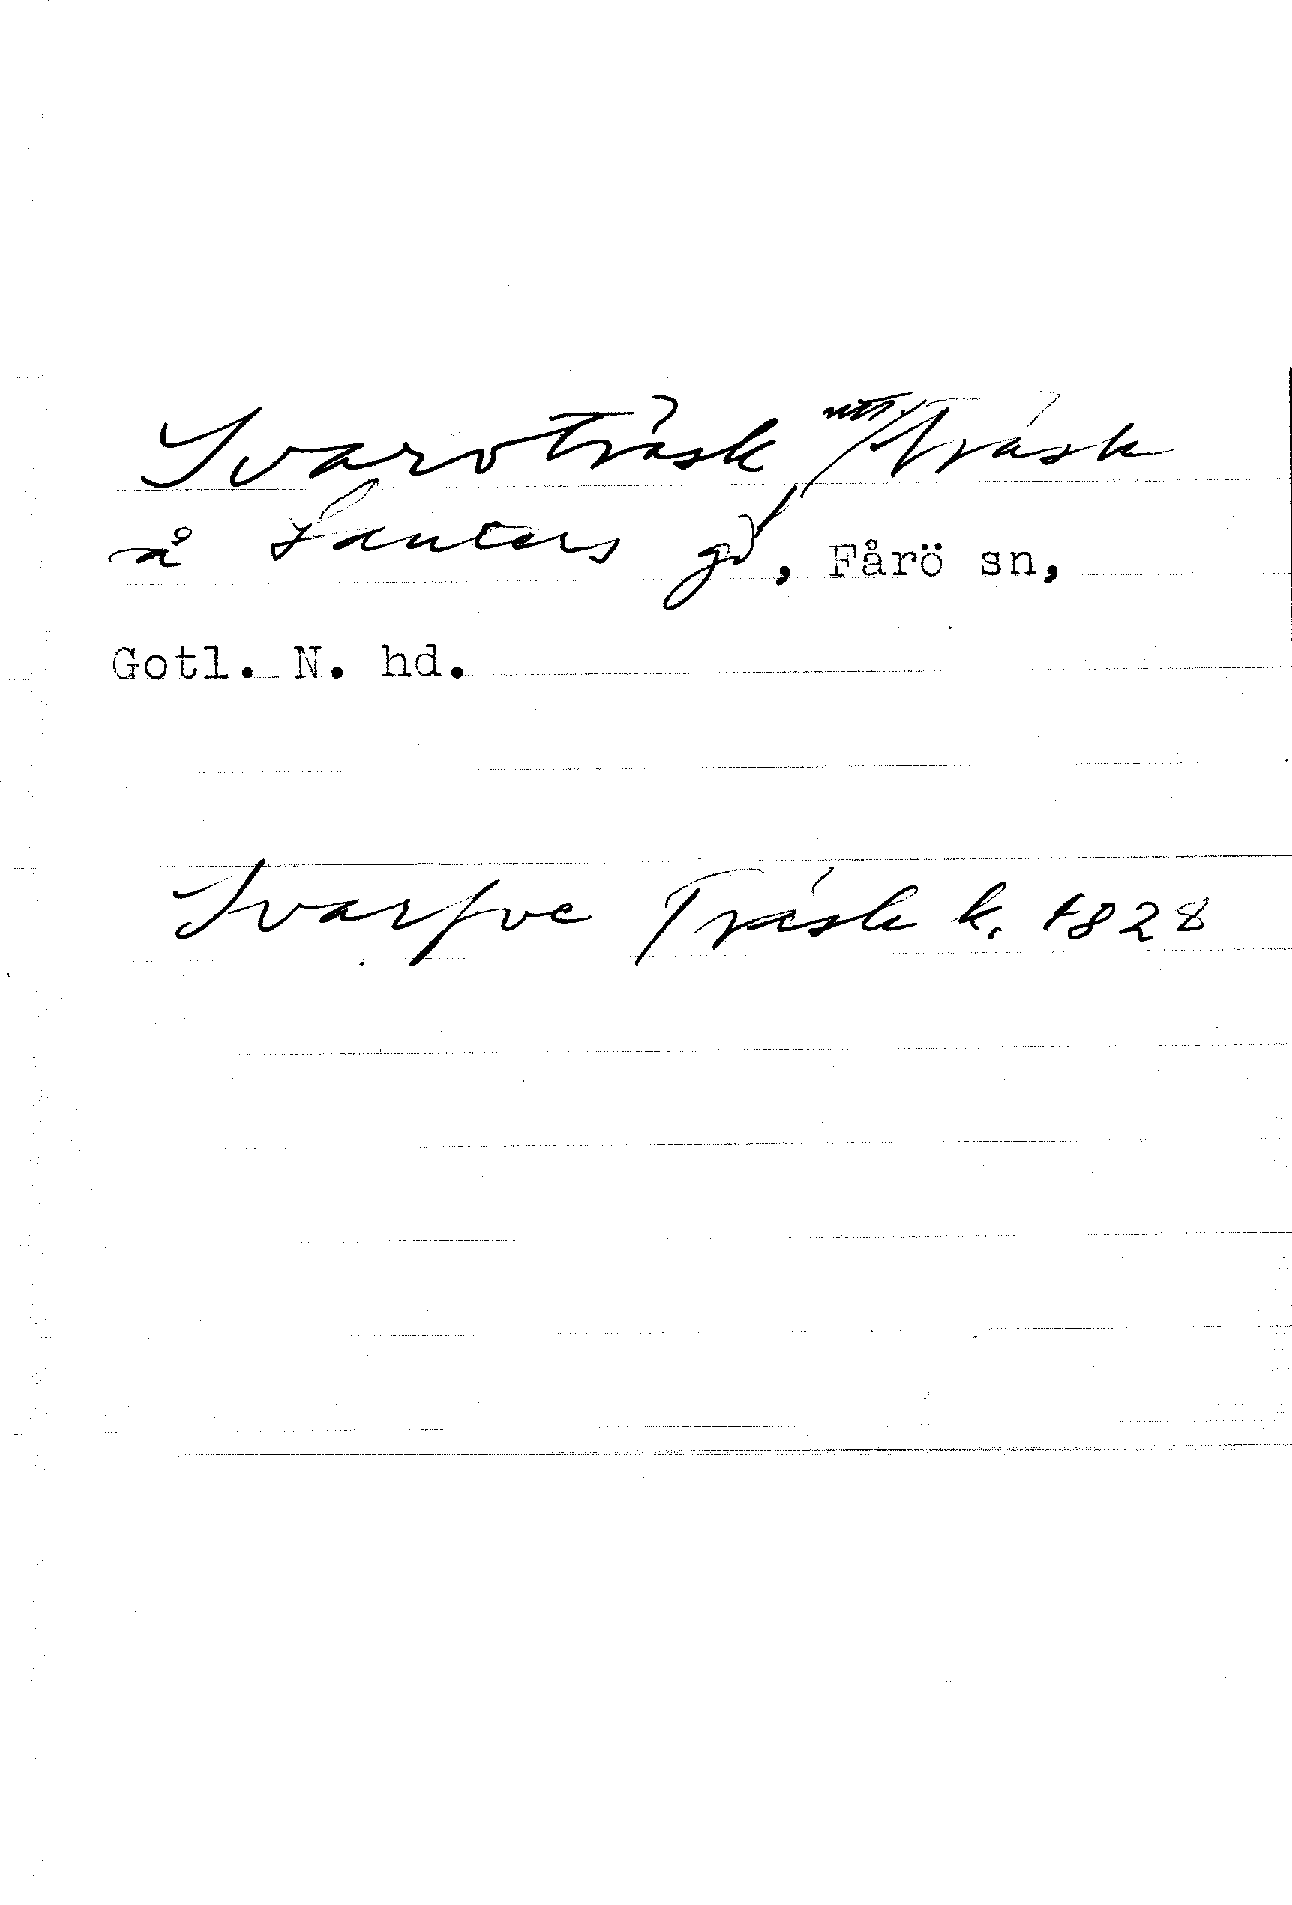 Svarvträsk utt. / träsk
å Lauters gd, Fårö sn,
Gotl. N. hd.
Svarfve Träsk k. 1828